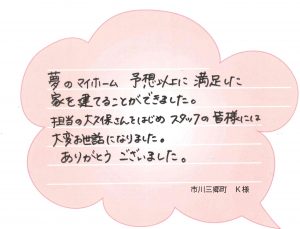 夢のマイホーム 予想以上に 満足した
家を建てることができました。
担当の大久保さんをはじめ スタッフの皆様には
大変お世話になりました。
ありがとう ございました。
市川三郷町 K様